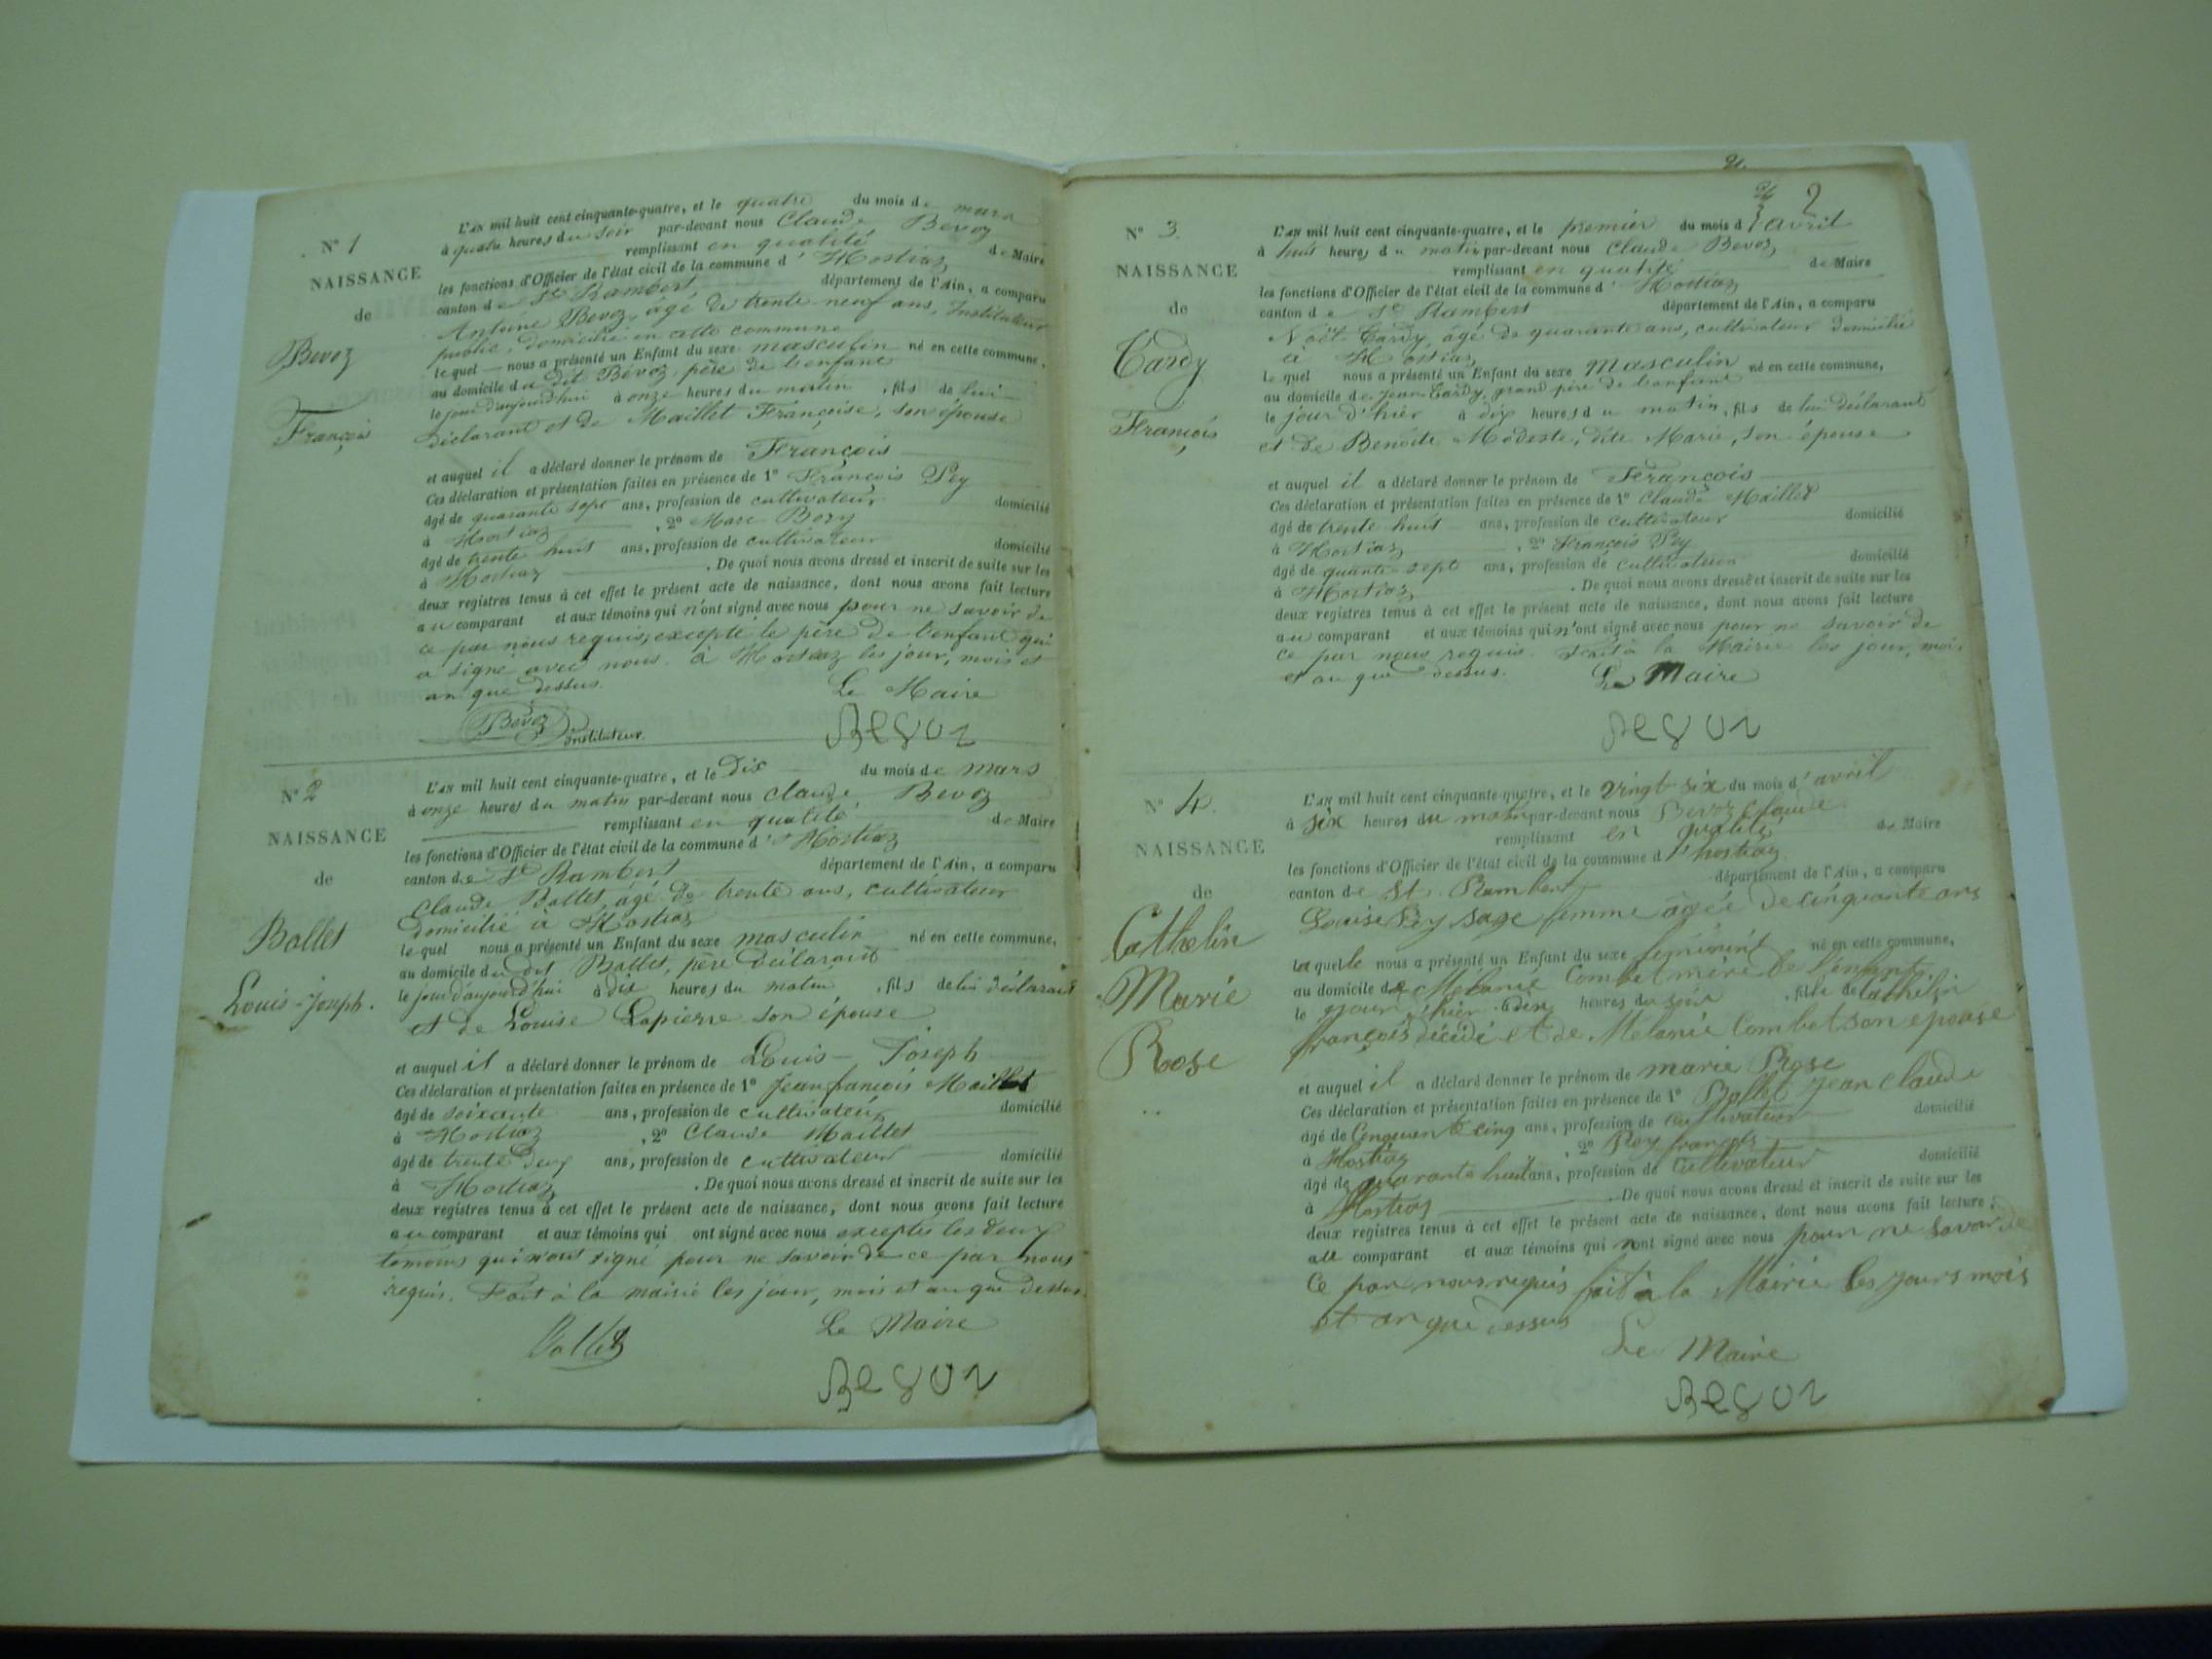 N° 1
NAISSANCE
de
Bevoz
François
L'AN mil huit cent cinquante-quatre, et le quatre du mois de mars
à quatre heures du soir par-devant nous Claude Bevoz
remplissant en qualité de Maire
les fonctions d'Officier de l'état civil de la commune d'Hostiaz
canton de St Rambert département de l'Ain, a comparu
Antoine Bevoz, âgé de trente neuf ans, Instituteur
public, domicilié en cette commune
lequel nous a présenté un Enfant du sexe masculin né en cette commune,
au domicile du dit Bévoz, père de l'enfant
le jour d'aujourd'hui à onze heures du matin, fils de lui
déclarant et de Maillet Françoise, son épouse
et auquel il a déclaré donner le prénom de François
Ces déclaration et présentation faites en présence de 1° François Pey
âgé de quarante sept ans, profession de cultivateur domicilié
à Hostiaz, 2° Marc Bozy
âgé de trente huit ans, profession de cultivateur domicilié
à Hostiaz. De quoi nous avons dressé et inscrit de suite sur les
deux registres tenus à cet effet le présent acte de naissance, dont nous avons fait lecture
au comparant et aux témoins qui n'ont signé avec nous pour ne savoir de
ce par nous requis, excepté le père de l'enfant qui
a signé avec nous. à Hostiaz les jour, mois et
an que dessus. Le Maire
Bévoz instituteur BeVoz
N° 2
NAISSANCE
de
Ballet
Louis-Joseph.
L'AN mil huit cent cinquante-quatre, et le Dix du mois de mars
à onze heures du matin par-devant nous Claude Bevoz
remplissant en qualité de Maire
les fonctions d'Officier de l'état civil de la commune d'Hostiaz
canton de St Rambert département de l'Ain, a comparu
Claude Ballet, âgé de trente ans, cultivateur
domicilié à Hostiaz
lequel nous a présenté un Enfant du sexe masculin né en cette commune,
au domicile du dit Ballet, père déclarant
le jour d'aujourd'hui à dix heures du matin, fils de lui déclarant
et de Louise Lapierre son épouse
et auquel il a déclaré donner le prénom de Louis-Joseph
Ces déclaration et présentation faites en présence de 1° Jean françois Maillet
âgé de soixante ans, profession de cultivateur domicilié
à Hostiaz, 2° Claude Maillet
âgé de trente deux ans, profession de cultivateur domicilié
à Hostiaz. De quoi nous avons dressé et inscrit de suite sur les
deux registres tenus à cet effet le présent acte de naissance, dont nous avons fait lecture
au comparant et aux témoins qui ont signé avec nous exceptés les deux
témoins qui n'ont signé pour ne savoir de ce par nous
requis. Fait à la mairie les jour, mois et an que dessus.
Ballet Le Maire
BeVoz
2
N° 3
NAISSANCE
de
Tardy
François
L'AN mil huit cent cinquante-quatre, et le premier du mois d'avril
à huit heures du matin par-devant nous Claude Bevoz
remplissant en qualité de Maire
les fonctions d'Officier de l'état civil de la commune d'Hostiaz
canton de St Rambert département de l'Ain, a comparu
Noël Tardy, âgé de quarante ans, cultivateur domicilié
à Hostiaz
lequel nous a présenté un Enfant du sexe Masculin né en cette commune,
au domicile de Jean Tardy, grand père de l'enfant
le jour d'hier à dix heures du matin, fils de lui déclarant
et de Benoite Modeste, dite Marie, son épouse
et auquel il a déclaré donner le prénom de François
Ces déclaration et présentation faites en présence de 1° Claude Maillet
âgé de trente huit ans, profession de cultivateur domicilié
à Hostiaz, 2° François Pey
âgé de quante-sept ans, profession de cultivateur domicilié
à Hostiaz. De quoi nous avons dressé et inscrit de suite sur les
deux registres tenus à cet effet le présent acte de naissance, dont nous avons fait lecture
au comparant et aux témoins qui n'ont signé avec nous pour ne savoir de
ce par nous requis. Fait à la Mairie les jour, mois
et an que dessus. Le Maire
BeVoz
N° 4.
NAISSANCE
de
Cathelin
Marie
Rose
L'AN mil huit cent cinquante-quatre, et le vingt six du mois d'avril
à six heures du matin par-devant nous Bevoz Claude
remplissant en qualité de Maire
les fonctions d'Officier de l'état civil de la commune d'hostiaz
canton de St. Rambert département de l'Ain, a comparu
Louise Pey sage femme âgée de cinquante ans
laquelle nous a présenté un Enfant du sexe feminint né en cette commune,
au domicile de Mélanie Combet mère de l'enfant.
le jour d'hier à dix heures du soir, fille de Cathelin
françois décidé et de Melanie Combet son epouse
et auquel il a déclaré donner le prénom de marie Rose
Ces déclaration et présentation faites en présence de 1° Ballet jean Claude
âgé de Cinquante cinq ans, profession de cultivateur domicilié
à Hostiaz, 2° Pey françois
âgé de quarante huit ans, profession de Cultivateur domicilié
à Hostiaz. De quoi nous avons dressé et inscrit de suite sur les
deux registres tenus à cet effet le présent acte de naissance, dont nous avons fait lecture,
au comparant et aux témoins qui n'ont signé avec nous pour ne savoir de
Ce par nous requis fait à la Mairie les jours mois
et an que dessus
Le Maire
BeVoz